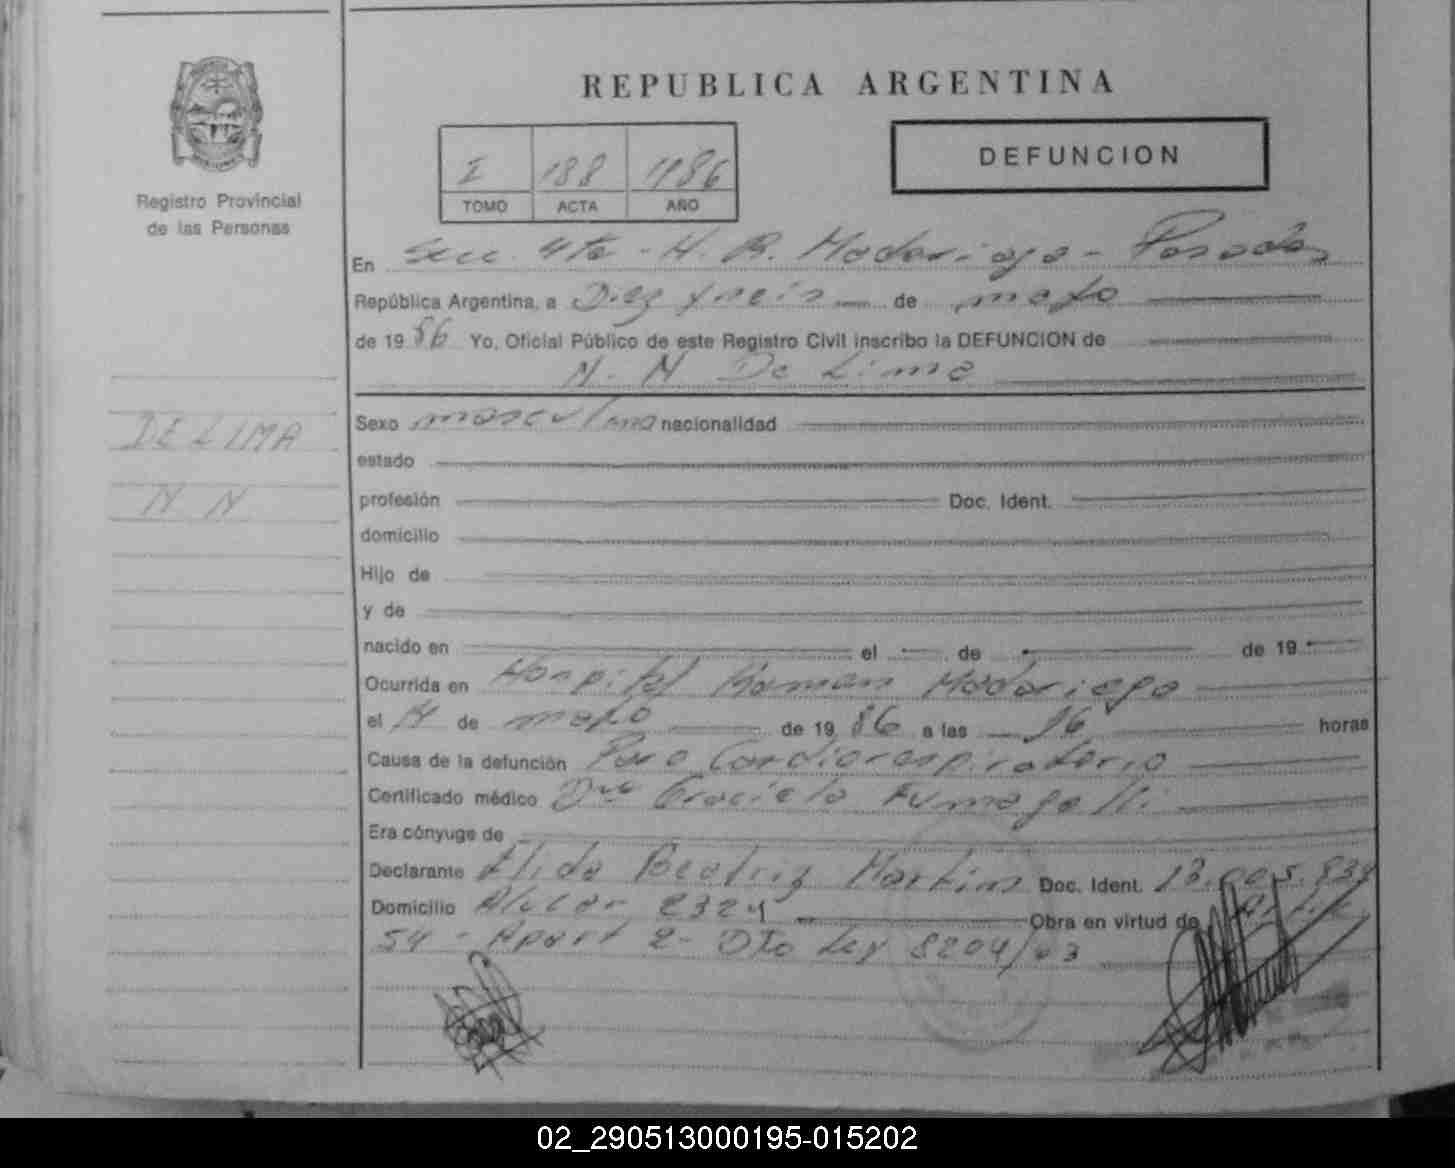 REPUBLICA ARGENTINA
DEFUNCION
I 188 1986
TOMO ACTA AÑO
Registro Provincial
de las Personas
En Secc. 4ta - H. R. Madariaga - Posadas
República Argentina, a Diez y seis de mayo
de 19 86 Yo, Oficial Público de este Registro Civil inscribo la DEFUNCION de
N. N De Lima
DE LIMA
N N
Sexo masculino nacionalidad
estado
profesión Doc. Ident.
domicilio
Hijo de
y de
nacido en el de de 19
Ocurrida en Hospital Ramon Madariaga
el de mayo de 19 86 a las 16 horas
Causa de la defunción Paro Cardiorespiratorio
Certificado médico Dra Graciela Fumagalli
Era cónyuge de
Declarante Elida Beatriz Martins Doc. Ident.
Domicilio 2324 Obra en virtud de Art.
54 - Apart 2 - Dto Ley 8204/63
02_290513000195-015202